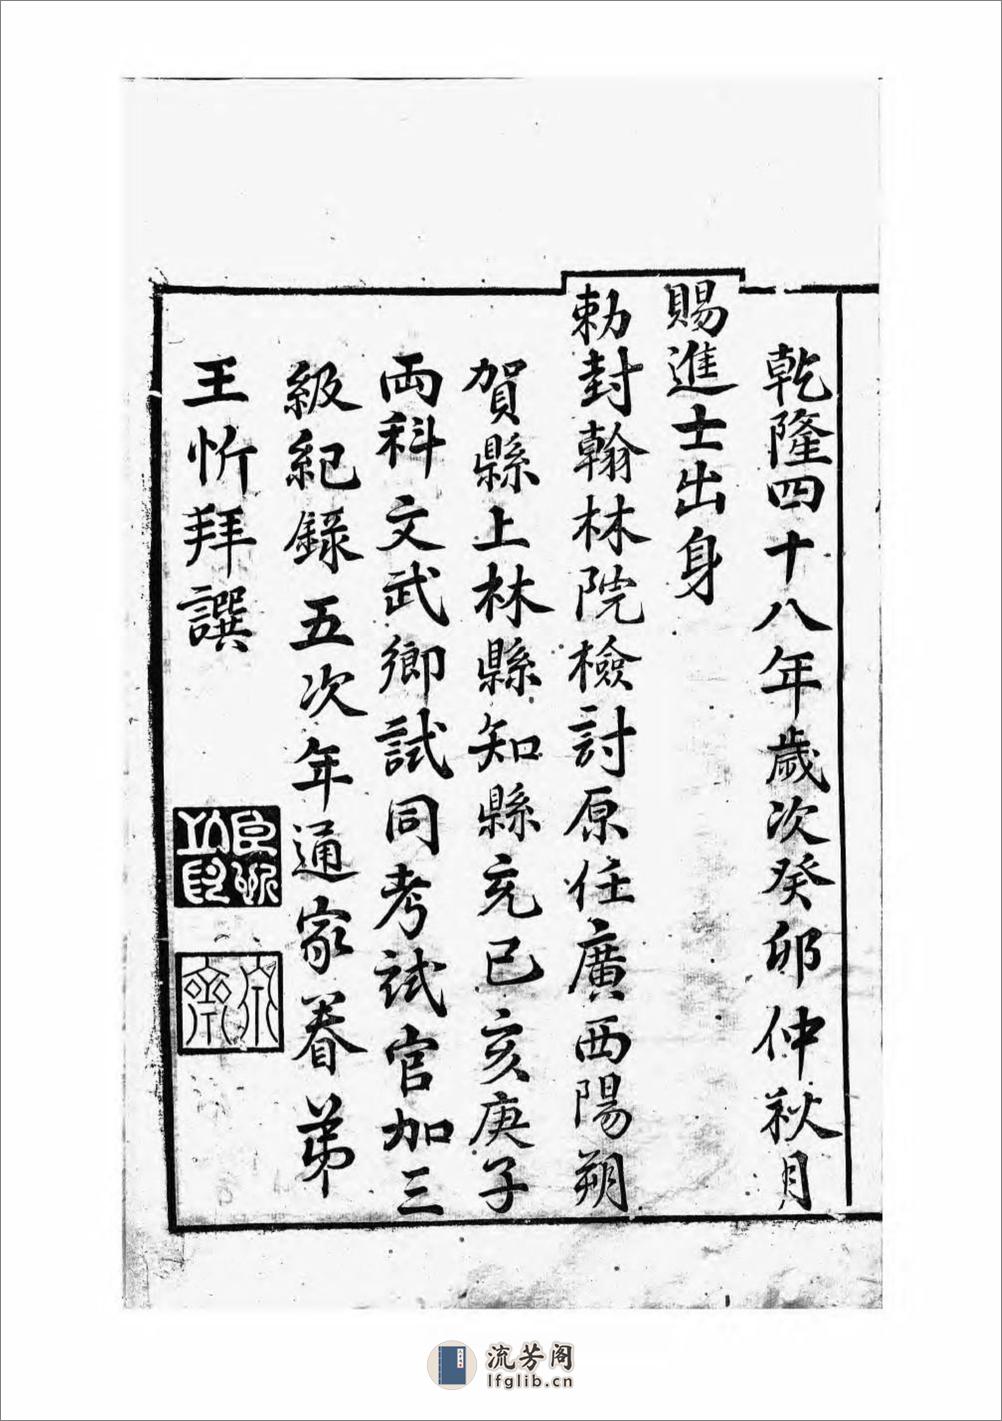 乾隆四十八年歲次癸卯仲秋月
賜進士出身
勅封翰林院檢討原任廣西陽朔
賀縣上林縣知縣充己亥庚子
兩科文武鄉試同考試官加三
級紀錄五次年通家眷弟
王忻拜譔
臣忻之印
流芳阁
lfglib.cn